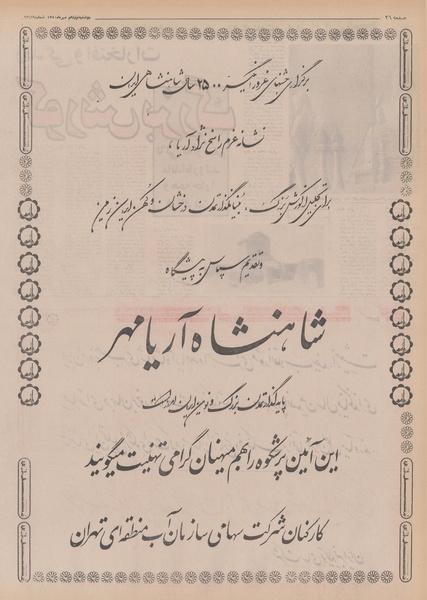 صفحه ۳۶
برگزاری جشنهای غرورانگیز ۲۵۰۰ سال شاهنشاهی ایران
نشانه عزم راسخ نژاد آریا،
برای تجلیل از کورش بزرگ، بنیانگذار تمدن درخشان و کهن ایران زمین
و تقدیم سپاس به پیشگاه
شاهنشاه آریامهر
پایه گذار تمدن بزرگ و نوین ایران
این آئین پرشکوه را به هم میهنان گرامی تهنیت میگویند
کارکنان شرکت سهامی سازمان آب منطقه ای تهران